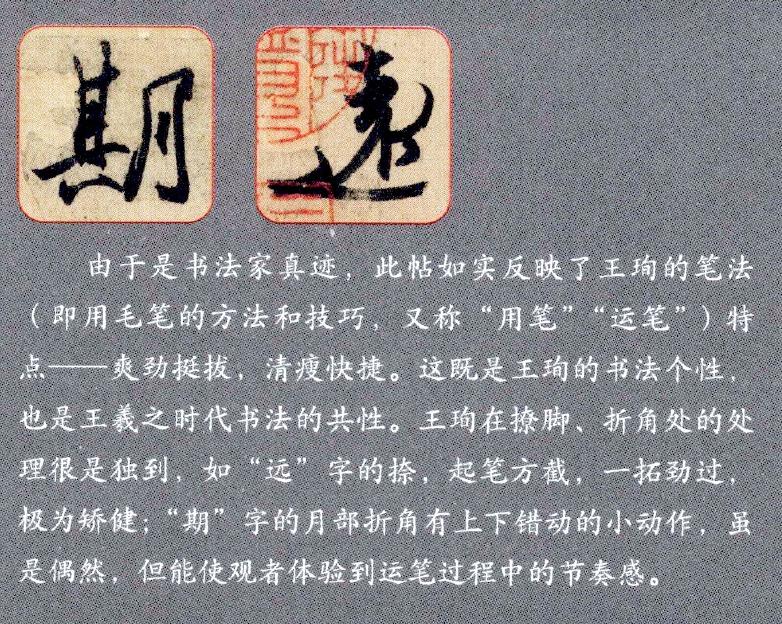 期 遠
由于是书法家真迹，此帖如实反映了王珣的笔法
（即用毛笔的方法和技巧，又称“用笔”“运笔”）特
点——爽劲挺拔，清瘦快捷。这既是王珣的书法个性，
也是王羲之时代书法的共性。王珣在撩脚、折角处的处
理很是独到，如“远”字的捺，起笔方截，一拓劲过，
极为矫健；“期”字的月部折角有上下错动的小动作，虽
是偶然，但能使观者体验到运笔过程中的节奏感。